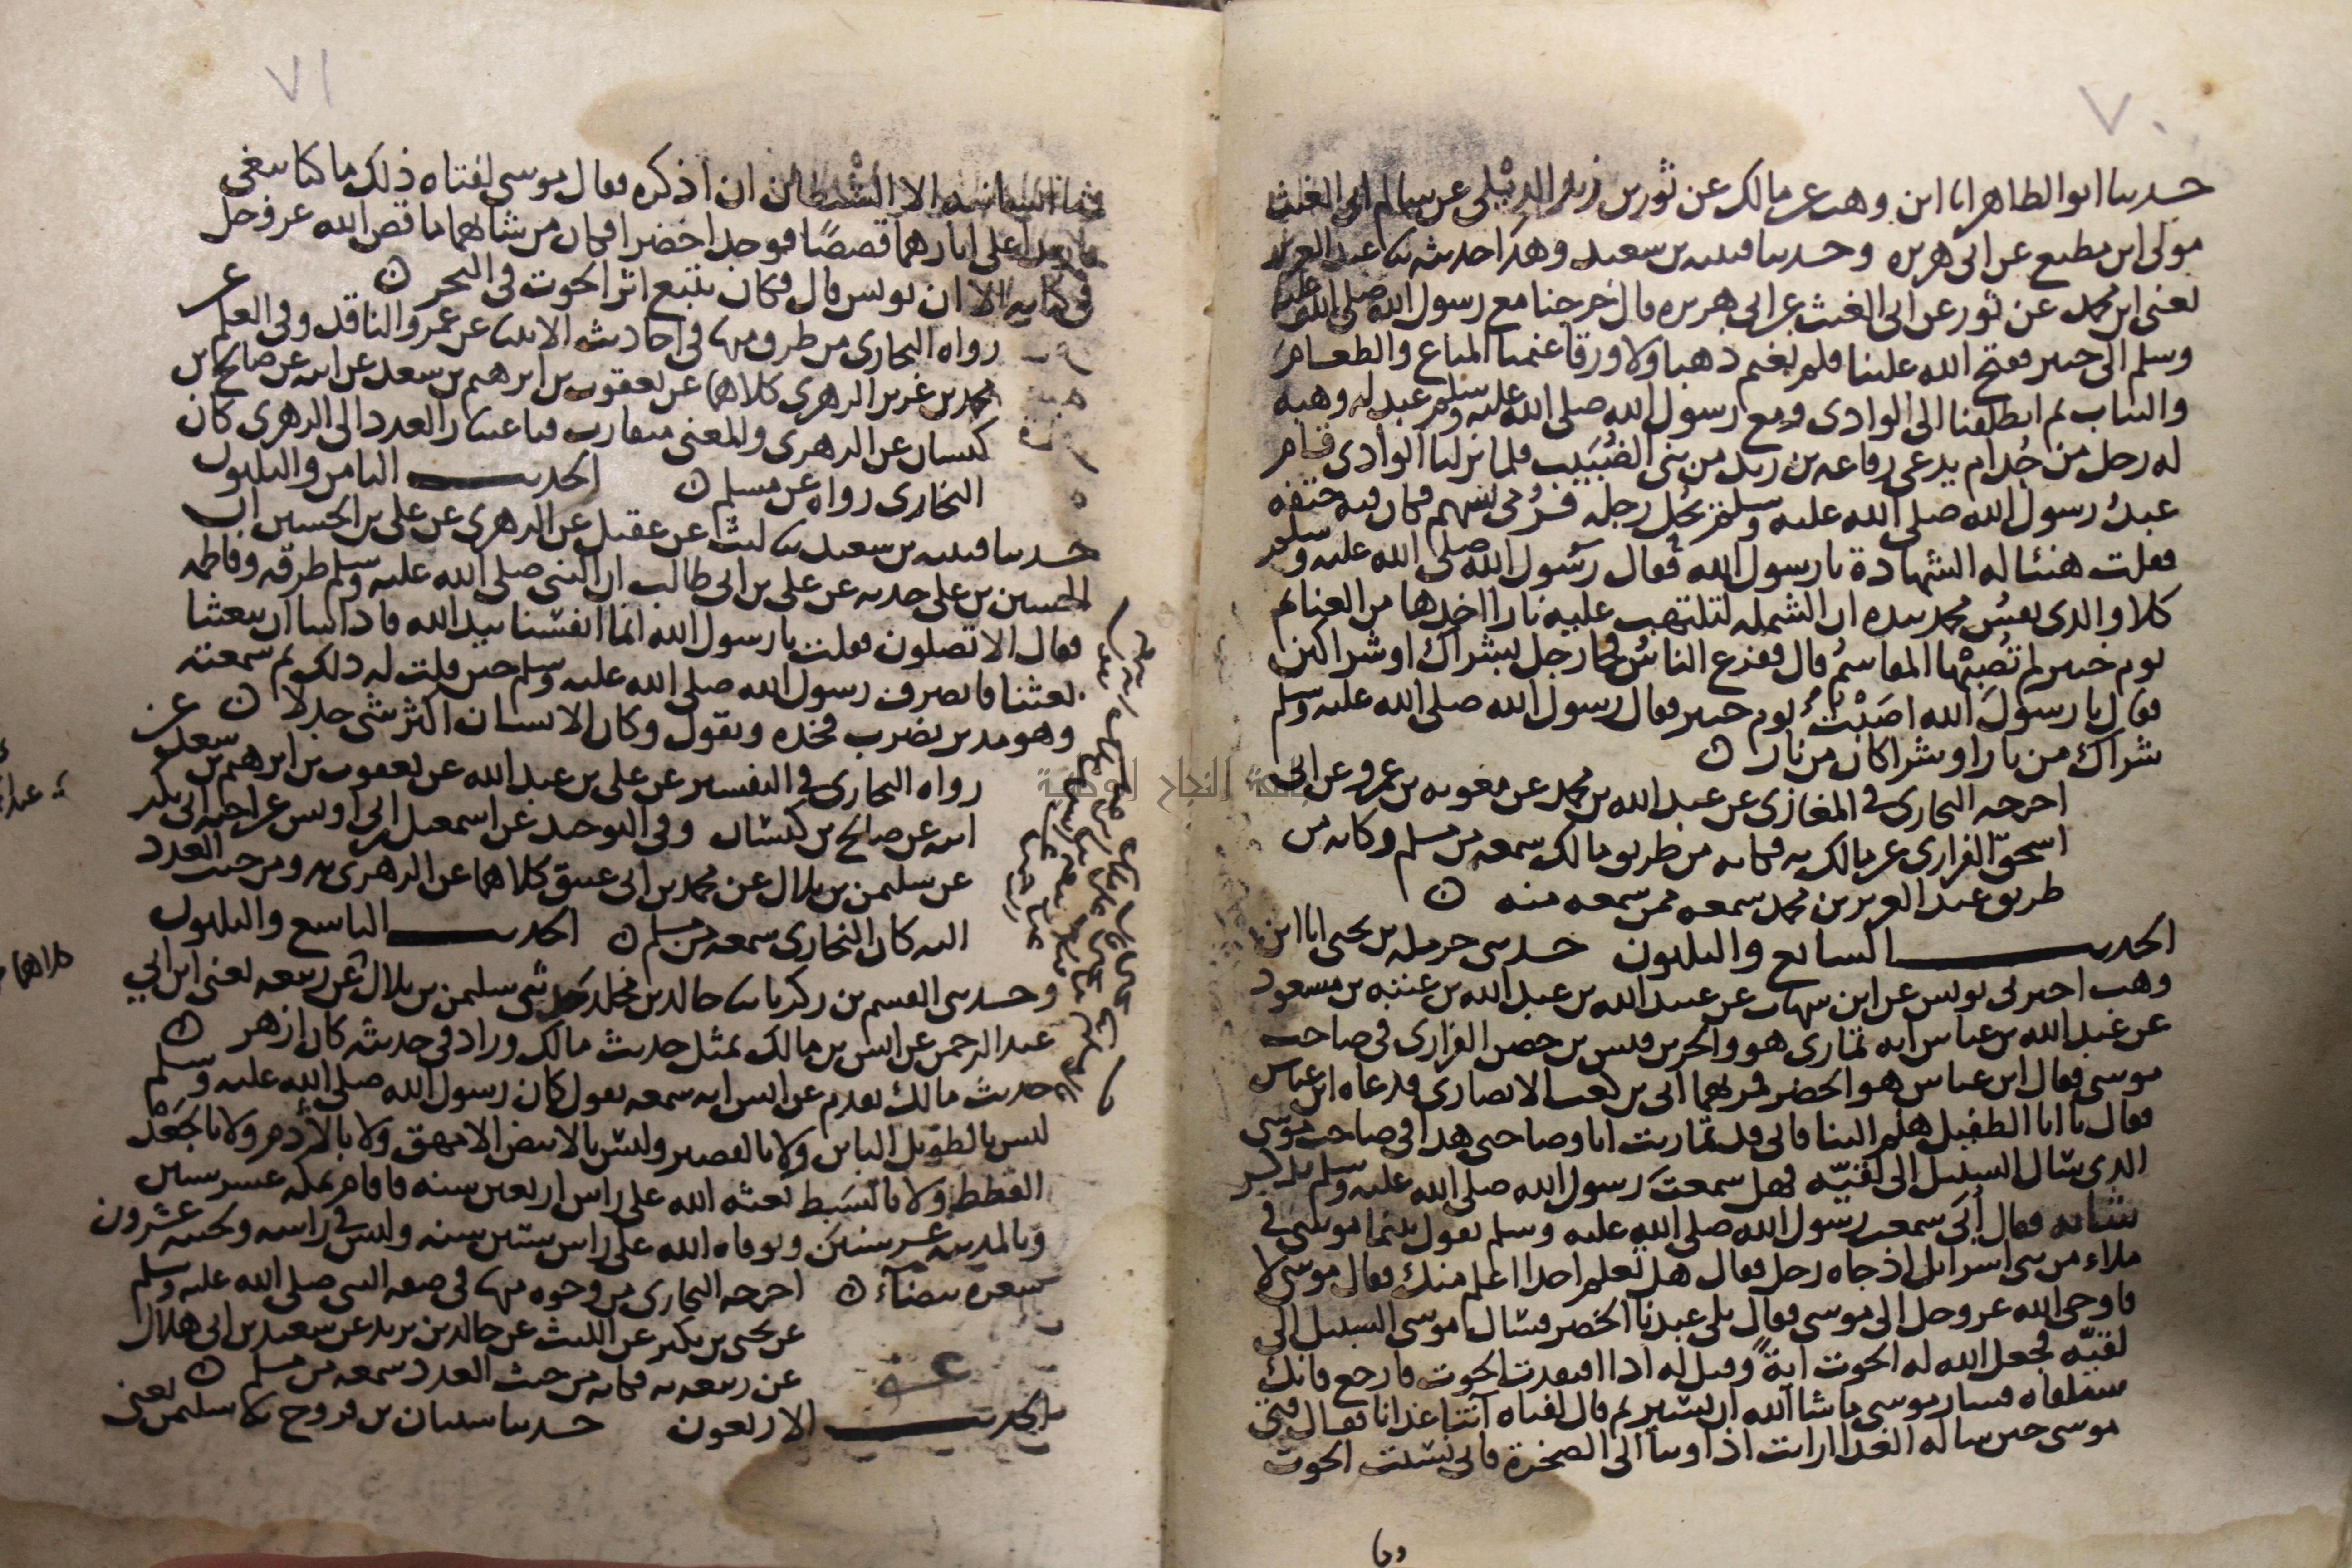 ٧٠
حدثنا ابو الطاهر انا ابن وهب عن مالك عن ثور بن زيد الدئلي عن سالم ابي الغيث
مولى ابن مطيع عن ابي هريرة وحدثنا قتيبة بن سعيد وهذا حديثه ثنا عبد العزيز
يعني ابن محمد عن ثور عن ابي الغيث عن ابي هريرة قال خرجنا مع رسول الله صلى الله عليه
وسلم الى خيبر ففتح الله علينا فلم نغنم ذهبا ولا ورقا غنمنا المتاع والطعام
والثياب ثم انطلقنا الى الوادي ومع رسول الله صلى الله عليه وسلم عبد له وهبه
له رجل من جُذام يدعى رفاعة بن زيد من بني الضُبَيب فلما نزلنا الوادي قام
عبدُ رسول الله صلى الله عليه وسلم يحُل رحله فرُمي بسهم فكان فيه حتفه
فقلت هنيئا له الشهادة يا رسول الله فقال رسول الله صلى الله عليه وسلم
كلا والذي نفسُ محمد بيده ان الشملة لتلتهب عليه نارا اخذها من الغنائم
يوم خيبر لم تُصِبْها المقاسمُ قال ففزع الناسُ فجا رجل بشراك او شراكين
فقال يا رسولَ الله اصَبْتُ يوم خيبر فقال رسول الله صلى الله عليه وسلم
شراك من نار او شراكان من نار ٥
اخرجه البخاري في المغازي عن عبد الله بن محمد عن معوية بن عمرو عن ابي
اسحق الفزاري عن مالك به فكانه من طريق مالك سمعه من مسلم وكانه من
طريق عبد العزيز بن محمد سمعه ممن سمعه منه ٥
الحديث السابع والثلاثون حدثني حرملة بن يحيى انا ابن
وهب اخبرني يونس عن ابن شهاب عن عبيد الله بن عبد الله بن عتبه بن مسعود
عن عبد الله بن عباس انه تمارى هو والحر بن قيس بن حصن الفزاري في صاحب
موسى فقال ابن عباس هو الخضر فمر بهما ابي بن كعب الانصاري فدعاه ابن عباس
فقال يا ابا الطفيل هلم الينا فاني قد تماريت انا وصاحبي هذا في صاحب موسى
الذي سال السبيل الى لقيّه فهل سمعت رسول الله صلى الله عليه وسلم يذكر
شانه فقال اُبَي سمعت رسول الله صلى الله عليه وسلم يقول بينما موسى في
ملاء من بني اسرائيل اذ جاه رجل فقال هل تعلم احدا اعلم منك فقال موسى لا
فاوحى الله عز وجل الى موسى فقال بلى عبدنا الخضر فسال موسى السبيل الى
لقيّه فجعل الله له الحوت ايةً وقيل له اذا افتقدت الحوت فارجع فانك
ستلقاه فسار موسى ما شا الله ان يسير ثم قال لفتاه آتنا غدانا فقال فتى
موسى حين ساله الغدا ارايت اذ اوينا الى الصخرة فاني نسيت الحوت
٧١
وما انسانيه الا الشيطان ان اذكره فقال موسى لفتاه ذلك ما كنا نبغي
فارتدا على اثارهما قصصًا فوجدا خضرا فكان من شانهما ما قص الله عز وجل
في كتابه الا ان يونس قال فكان يتبع اثر الحوت في البحر ٥
رواه البخاري من طرق منها في احاديث الانبياء عن عمرو الناقد وفي العلم عن
محمد بن غرير الزهري كلاهما عن يعقوب بن ابرهيم بن سعد عن ابيه عن صالح بن
كيسان عن الزهري والمعنى متقارب فباعتبار العدد الى الزهري كان
البخاري رواه عن مسلم ٥ الحديث الثامن والثلاثون
حدثنا قتيبة بن سعيد ثنا ليث عن عقيل عن الزهري عن علي بن الحسين ان
الحسين بن علي حدثه عن علي بن ابي طالب ان النبي صلى الله عليه وسلم طرقه وفاطمة
فقال الا تصلون فقلت يا رسول الله انما انفسنا بيد الله فاذا شا ان يبعثنا
بعثنا فانصرف رسول الله صلى الله عليه وسلم حين قلت له ذلك ثم سمعته
وهو مدبر يضرب فخذه ويقول وكان الانسان اكثر شي جدلا ٥
رواه البخاري في التفسير عن علي بن عبد الله عن يعقوب بن ابرهيم بن سعد عن
ابيه عن صالح بن كيسان وفي التوحيد عن اسمعيل بن ابي اويس عن اخيه ابي بكر
عن سليمن بن بلال عن محمد بن ابي عتيق كلاهما عن الزهري به ومن حيث العدد
اليه كان البخاري سمعه من مسلم ٥ الحديث التاسع والثلاثون
وحدثني القسم بن زكريا ثنا خالد بن مخلد حدثني سليمن بن بلال عن ربيعه يعني ابن ابي
عبد الرحمن عن انس بن مالك بمثل حديث مالك وزاد في حديثه كان ازهر ٥
حديث مالك تقدم عن انس انه سمعه يقول كان رسول الله صلى الله عليه وسلم
ليس بالطويل البائن ولا بالقصير وليس بالابيض الامهق ولا بالآدم ولا بالجَعْد
القطط ولا بالسَبط بعثه الله على راس اربعين سنه فاقام بمكه عشر سنين
وبالمدينه عشر سنين وتوفاه الله على راس ستين سنه وليس في راسه ولحيته عشرون
شعره بيضاء ٥ اخرجه البخاري من وجوه منها في صفه النبي صلى الله عليه وسلم
عن يحيى بن بكير عن الليث عن خالد بن يزيد عن سعيد بن ابي هلال
عن ربيعه به فكانه من حيث العدد سمعه من مسلم ٥
الحديث الاربعون حدثنا شيبان بن فروخ ثنا سليمن يعني
كلاهما
جامعة النجاح الوطنية